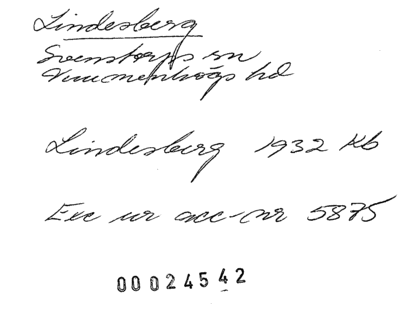 Lindesberg
Svenstorps sn
Vemmenhögs hd
Lindesberg 1932 Kb
Exc ur acc-nr 5875
00024542